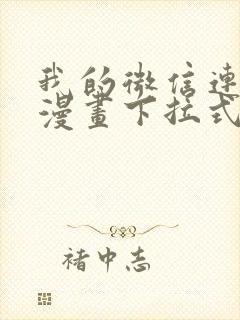 我的微信連
漫畫下拉式
褚中志